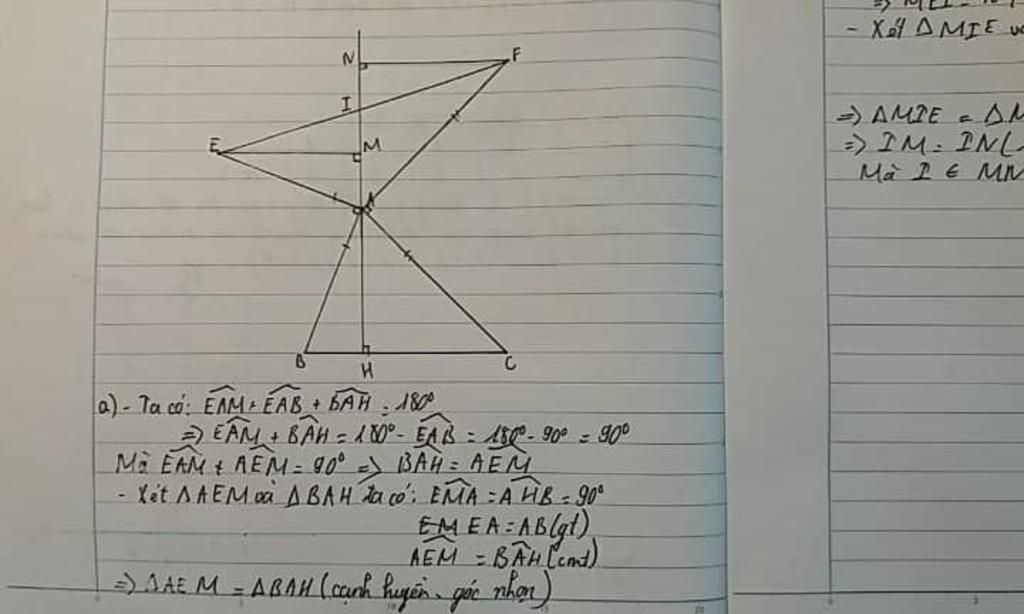 N
F
I
E
M
A
B
H
C
a) - Ta có: EAM + EAB + BAH = 180°
=> EAM + BAH = 180° - EAB = 180° - 90° = 90°
Mà EAM + AEM = 90° => BAH = AEM
- Xét ΔAEM và ΔBAH ta có: EMA = AHB = 90°
EM EA = AB (gt)
AEM = BAH (cmt)
=> ΔAEM = ΔBAH (cạnh huyền, góc nhọn)
=> MEI
- Xét ΔMIE
=> ΔMIE = ΔM
=> IM = IN (
Mà I ∈ MN